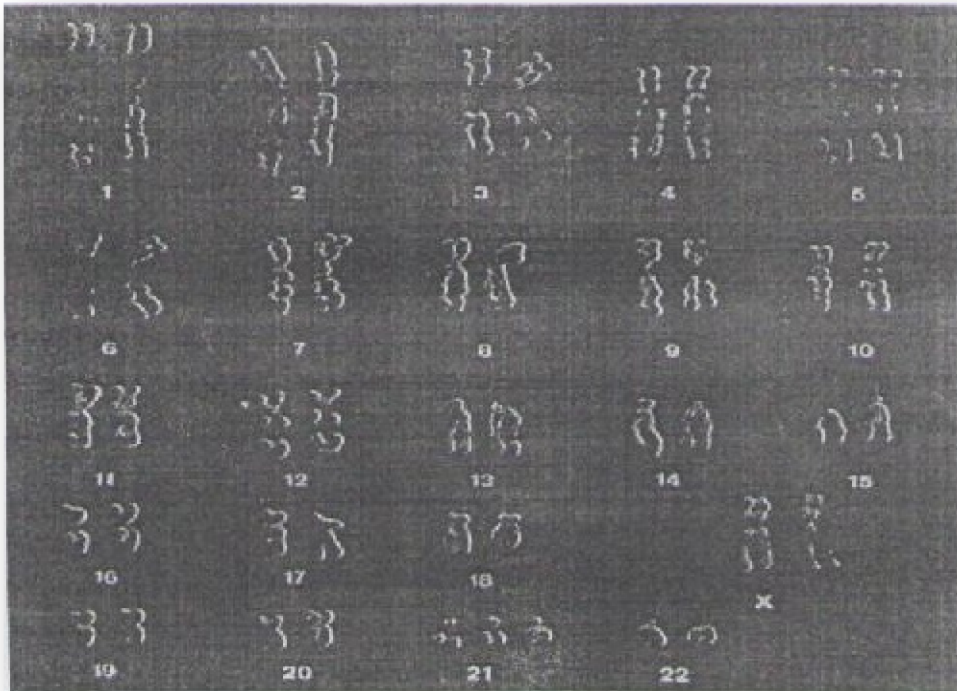 1 2 3 4 5
6 7 8 9 10
11 12 13 14 15
16 17 18 X
19 20 21 22